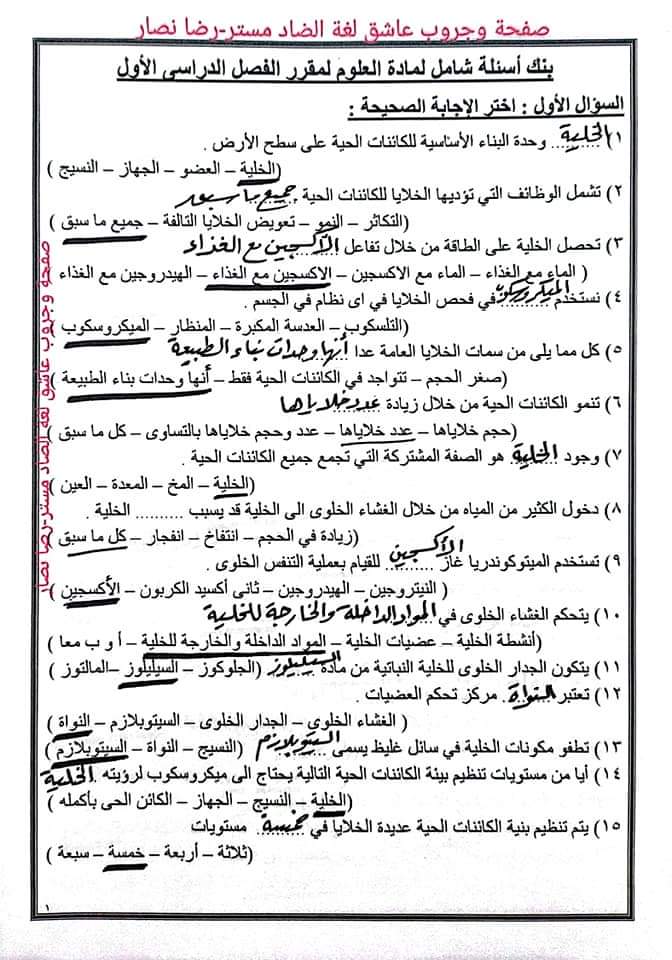 صفحة وجروب عاشق لغة الضاد مستر-رضا نصار
بنك أسئلة شامل لمادة العلوم لمقرر الفصل الدراسى الأول
السؤال الأول : اختر الإجابة الصحيحة :
١) الخلية وحدة البناء الأساسية للكائنات الحية على سطح الأرض .
(الخلية – العضو – الجهاز – النسيج )
٢) تشمل الوظائف التي تؤديها الخلايا للكائنات الحية جميع ما سبق
(التكاثر – النمو – تعويض الخلايا التالفة – جميع ما سبق )
٣) تحصل الخلية على الطاقة من خلال تفاعل الأكسجين مع الغذاء
( الماء مع الغذاء – الماء مع الاكسجين – الاكسجين مع الغذاء – الهيدروجين مع الغذاء
٤) نستخدم الميكروسكوب في فحص الخلايا في اى نظام في الجسم .
(التلسكوب – العدسة المكبرة – المنظار – الميكروسكوب )
٥) كل مما يلى من سمات الخلايا العامة عدا أنها وحدات بناء الطبيعة
(صغر الحجم – تتواجد في الكائنات الحية فقط – أنها وحدات بناء الطبيعة )
٦) تنمو الكائنات الحية من خلال زيادة عدد خلاياها
(حجم خلاياها – عدد خلاياها – عدد وحجم خلاياها بالتساوى – كل ما سبق )
٧) وجود الخلية هو الصفة المشتركة التي تجمع جميع الكائنات الحية .
(الخلية – المخ – المعدة – العين )
٨) دخول الكثير من المياه من خلال الغشاء الخلوى الى الخلية قد يسبب .......... الخلية .
(زيادة في الحجم – انتفاخ – انفجار – كل ما سبق )
٩) تستخدم الميتوكوندريا غاز الأكسجين للقيام بعملية التنفس الخلوى .
( النيتروجين – الهيدروجين – ثانى أكسيد الكربون – الأكسجين )
١٠) يتحكم الغشاء الخلوى في المواد الداخلة والخارجة للخلية
(أنشطة الخلية – عضيات الخلية – المواد الداخلة والخارجة للخلية – أ و ب معا )
١١) يتكون الجدار الخلوى للخلية النباتية من مادة السيليلوز (الجلوكوز – السيليلوز –المالتوز )
١٢) تعتبر النواة مركز تحكم العضيات .
( الغشاء الخلوى – الجدار الخلوى – السيتوبلازم – النواة )
١٣) تطفو مكونات الخلية في سائل غليظ يسمى السيتوبلازم (النسيج – النواة – السيتوبلازم )
١٤) أيا من مستويات تنظيم بيئة الكائنات الحية التالية يحتاج الى ميكروسكوب لرؤيته الخلية
(الخلية – النسيج – الجهاز – الكائن الحى بأكمله )
١٥) يتم تنظيم بنية الكائنات الحية عديدة الخلايا في خمسة مستويات
(ثلاثة – أربعة – خمسة – سبعة )
١
صفحة وجروب عاشق لغة الضاد مستر-رضا نصار